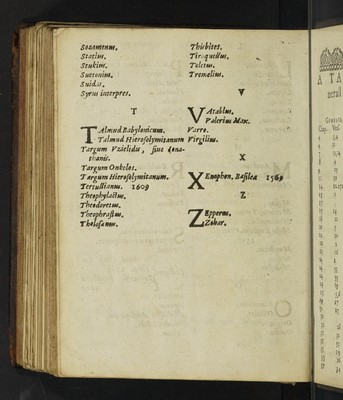 Sozomenus.
Statius.
Stukius.
Suetonius.
Suidas.
Syrus interpres.
T
TAlmud Babylonicum.
Talmud Hierosolymitanum
Targum Vzielidis, siue Iona-
thanis.
Targum Onkelos.
Targum Hierosolymitanum.
Tertullianus. 1609
Theophylactus.
Theodoretus.
Theophrastus.
Tholosanus.
Thisbites.
Tiraquellus.
Toletus.
Tremelius.
V
VAtablus.
Valerius Max.
Varro.
Virgilius.
X
XEnophon, Basileæ 1569
Z
ZEpperus.
Zohar.
A TA